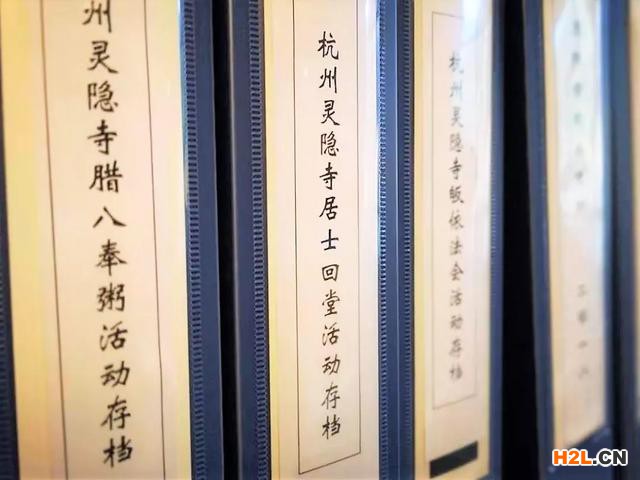 州灵隐寺腊八奉粥活动存档
杭州灵隐寺居士回堂活动存档
杭州灵隐寺皈依法会活动存档
H2L.CN